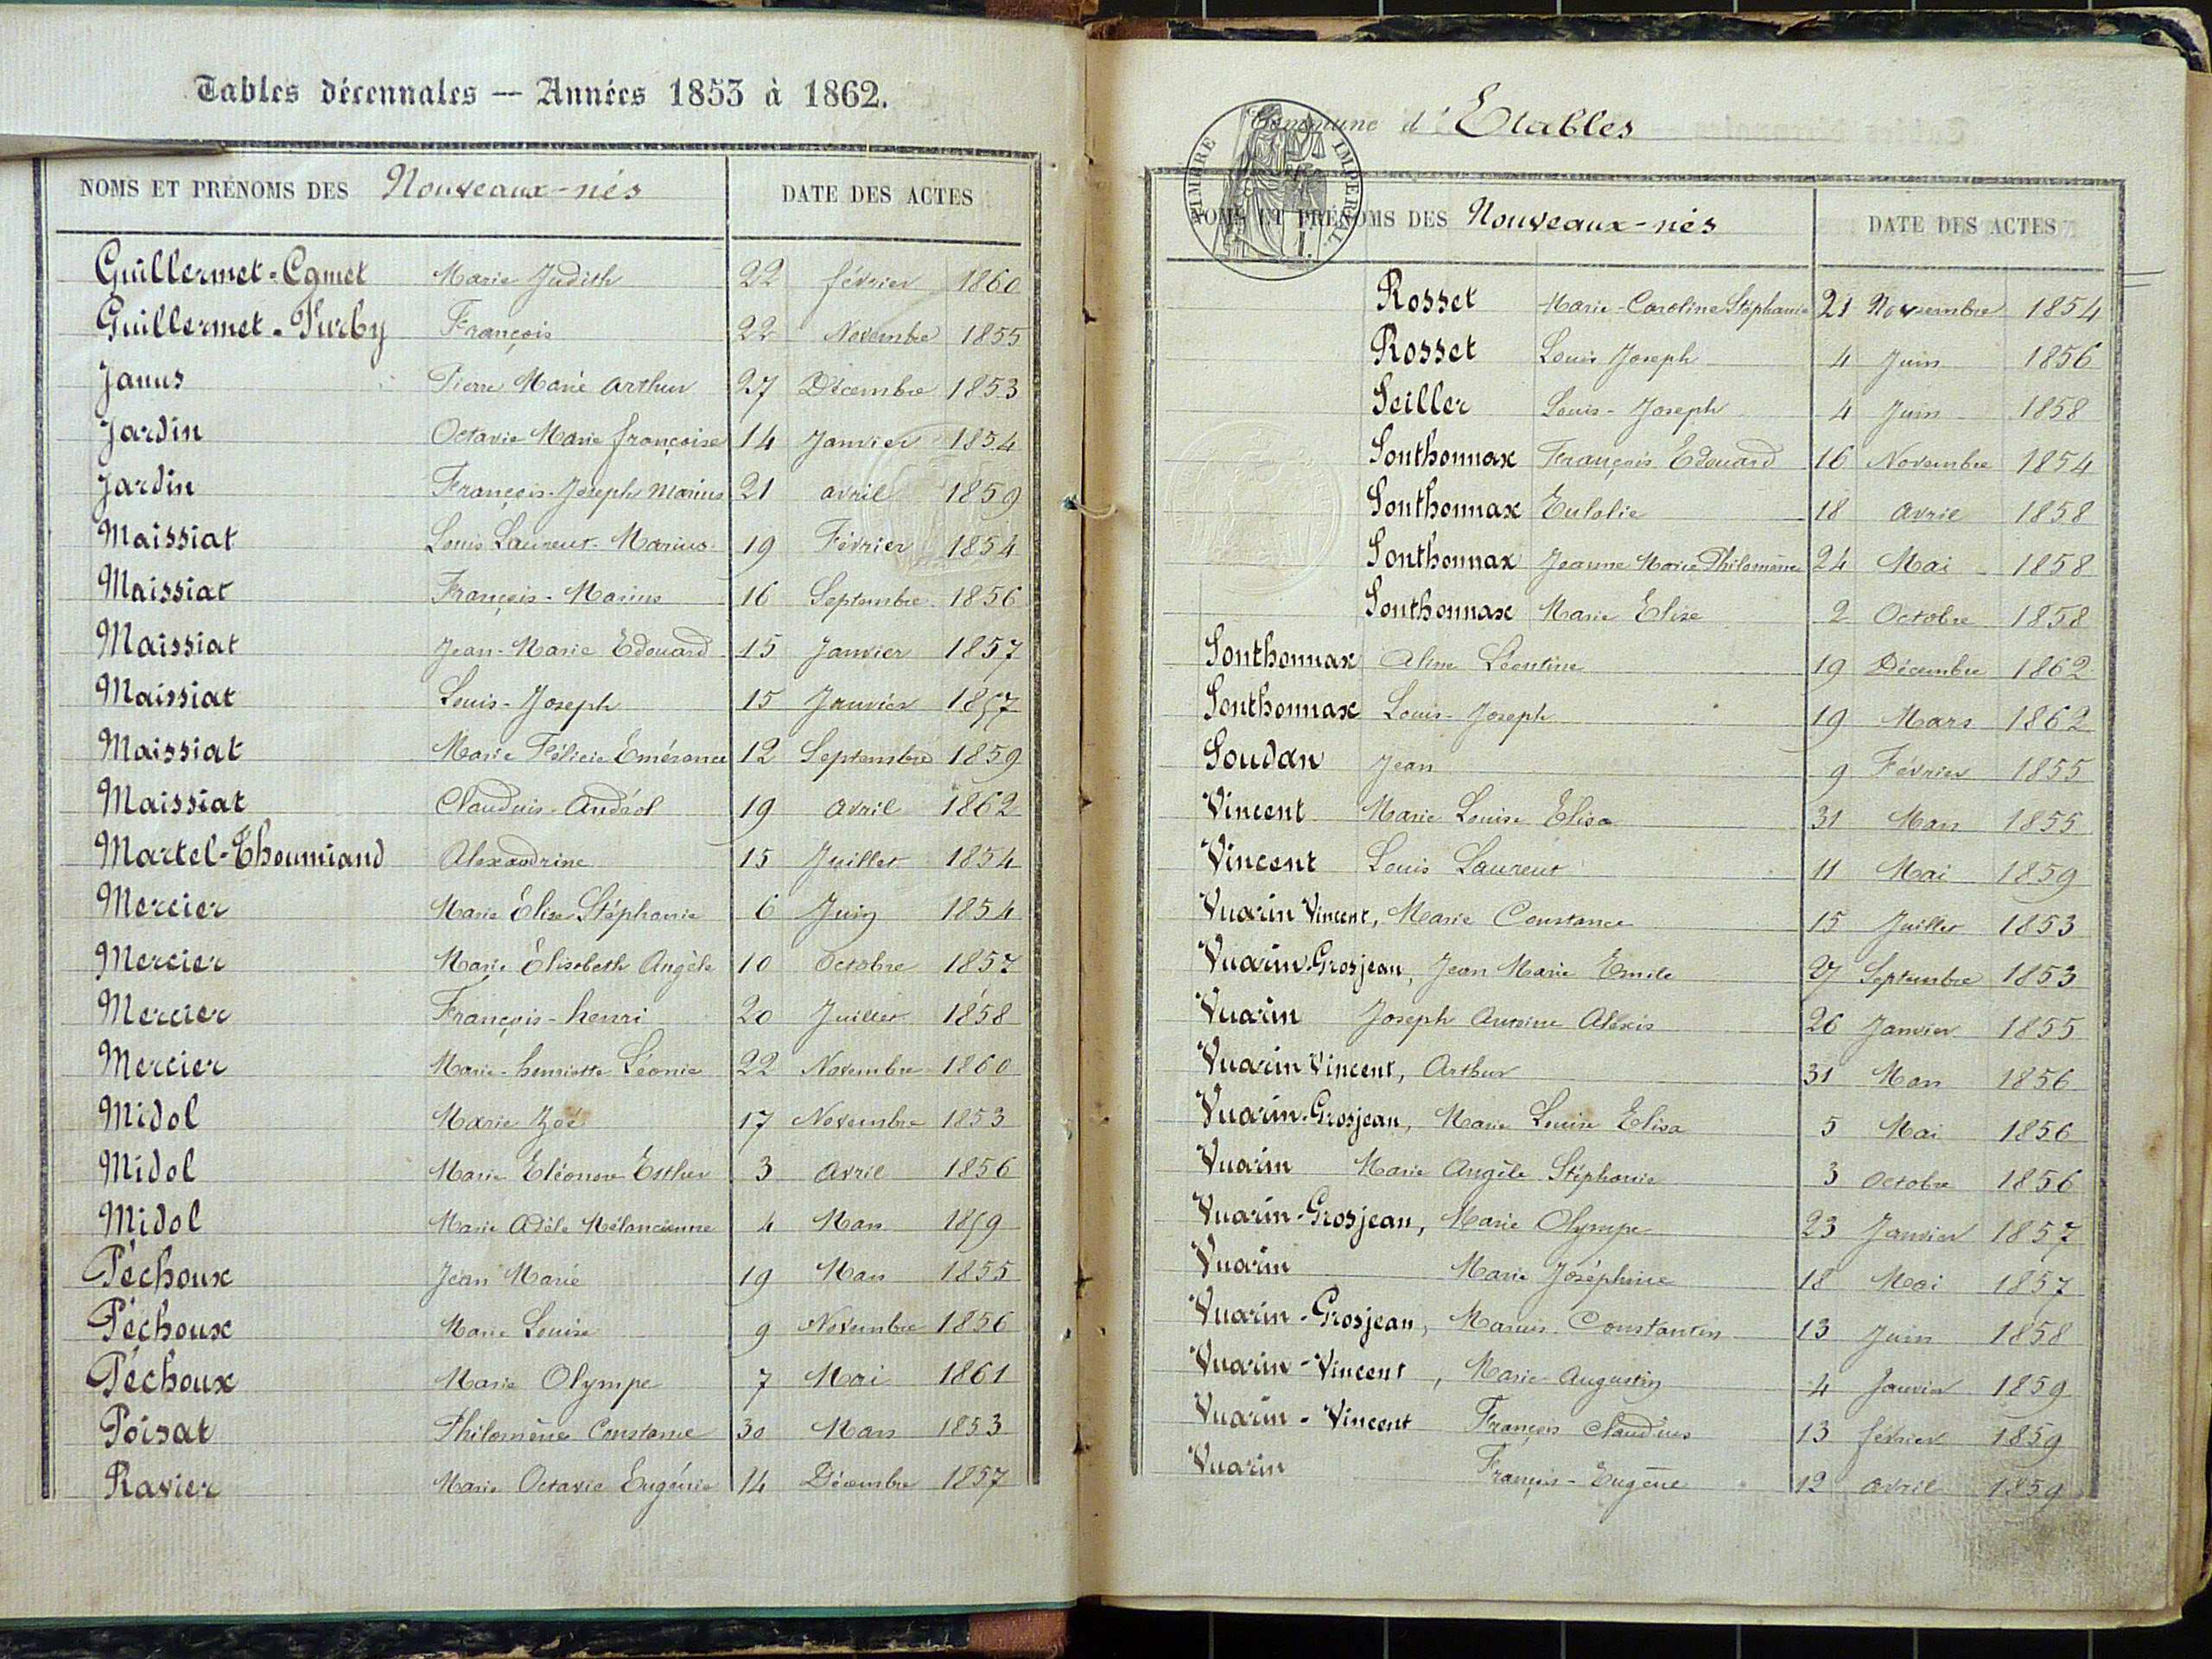 Tables décennales — Années 1853 à 1862.
NOMS ET PRÉNOMS DES Nouveaux-nés DATE DES ACTES
Guillermet-Comet Marie Judith 22 février 1860
Guillermet-Furby François 22 Novembre 1855
Janus Pierre Marie Arthur 27 Décembre 1853
Jardin Octavie Marie françoise 14 Janvier 1854
Jardin François-Joseph Marius 21 avril 1859
Maissiat Louis Laurent-Marius 19 Février 1854
Maissiat François-Marius 16 Septembre 1856
Maissiat Jean-Marie Edouard 15 Janvier 1857
Maissiat Louis-Joseph 15 Janvier 1857
Maissiat Marie Félicie Emérance 12 Septembre 1859
Maissiat Claudius-Andéol 19 avril 1862
Martel-Thoumiand Alexandrine 15 Juillet 1854
Mercier Marie Élise Stéphanie 6 Juin 1854
Mercier Marie Élisabeth Angèle 10 Octobre 1857
Mercier François-henri 20 Juillet 1858
Mercier Marie-henriette Léonie 22 Novembre 1860
Midol Marie Zoé 17 Novembre 1853
Midol Marie Eléonore Esther 3 Avril 1856
Midol Marie Adèle Mélancienne 4 Mars 1859
Péchoux Jean Marie 19 Mars 1855
Péchoux Marie Louise 9 Novembre 1856
Péchoux Marie Olympe 7 Mai 1861
Poisat Philomène Constance 30 Mars 1853
Ravier Marie Octavie Eugénie 14 Décembre 1857
Commune d'Etables
TIMBRE IMPERIAL
NOMS ET PRÉNOMS DES Nouveaux-nés DATE DES ACTES
Rosset Marie-Caroline Stéphanie 21 Novembre 1854
Rosset Louis Joseph 4 Juin 1856
Seiller Louis-Joseph 4 Juin 1858
Sonthonnax François Edouard 16 Novembre 1854
Sonthonnax Eulalie 18 avril 1858
Sonthonnax Jeanne Marie Philomène 24 Mai 1858
Sonthonnax Marie Elise 2 Octobre 1858
Sonthonnax Aline Léontine 19 Décembre 1862
Sonthonnax Louis-Joseph 19 Mars 1862
Soudan Jean 9 Février 1855
Vincent Marie Louise Elisa 31 Mars 1855
Vincent Louis Laurent 11 Mai 1859
Vuarin Vincent, Marie Constance 15 Juillet 1853
Vuarin-Grosjean, Jean Marie Emile 27 Septembre 1853
Vuarin Joseph Antoine Alexis 26 Janvier 1855
Vuarin Vincent, Arthur 31 Mars 1856
Vuarin-Grosjean, Marie Louise Elisa 5 Mai 1856
Vuarin Marie Angèle Stéphanie 3 Octobre 1856
Vuarin-Grosjean, Marie Olympe 23 Janvier 1857
Vuarin Marie Joséphine 18 Mai 1857
Vuarin-Grosjean, Marius Constantin 13 Juin 1858
Vuarin-Vincent, Marie Augustin 4 Janvier 1859
Vuarin-Vincent François Claudius 13 février 1859
Vuarin François-Eugène 12 avril 1859